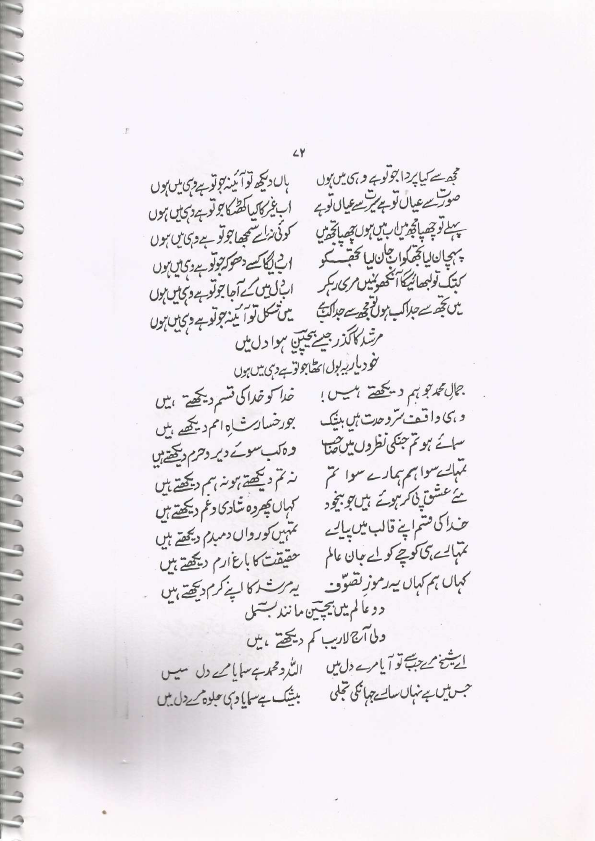 ۷۲
مجھ سے کیا پردا جو تو ہے وہی میں ہوں ہاں دیکھ تو آئینہ جو تو ہے وہی میں ہوں
صورت سے عیاں تو ہے سیرت سے عیاں تو ہے اب غیر کا کیا کھٹکا جو تو ہے وہی میں ہوں
پہلے تو چھپا مجھ میں اب میں ہوں چھپا تجھ میں کوئی نہ اسے سمجھا جو تو ہے وہی میں ہوں
پہچان لیا تجھکو اب جان لیا تجھ کو اب لیگا کسے دھوکہ جو تو ہے وہی میں ہوں
کبتک تو لبھائیگا آنکھوں میں مری رہکر اب دل میں کے آجا جو تو ہے وہی میں ہوں
میں تجھ سے جدا کب ہوں تو مجھ سے جدا کب ہے میں شکل تو آئینہ جو تو ہے وہی میں ہوں
مرشد کا گذر جیسے بیچینؔ ہوا دل میں
خود یار یہ بول اٹھا جو تو ہے وہی میں ہوں
جمال محمد جو ہم دیکھتے ہیں! خدا کو خدا کی قسم دیکھتے ہیں
وہی واقف سرّ وحدت ہیں بیشک جو رخسار شاہِ امم دیکھتے ہیں
سمائے ہو تم جنکی نظروں میں صاحب وہ کب سوئے دیر و حرم دیکھتے ہیں
تمہارے سوا ہم ہمارے سوا تم نہ تم دیکھتے ہو نہ ہم دیکھتے ہیں
مئے عشق پی کر ہوئے ہیں جو بیخود کہاں پھر وہ شادی و غم دیکھتے ہیں
خدا کی قسم اپنے قالب میں پیارے تمہیں کو رواں دمبدم دیکھتے ہیں
تمہارے ہی کوچے کو اے جان عالم حقیقت کا باغ ارم دیکھتے ہیں
کہاں ہم کہاں یہ رموز تصوّف یہ مرشد کا اپنے کرم دیکھتے ہیں
دو عالم میں بیچینؔ مانند بسمل
ولی آج لاریب کم دیکھتے ہیں
اے شیخ مرے جب سے تو آیا مرے دل میں اللہ و محمد ہے سمایا مرے دل میں
جس میں ہے نہاں سارے جہانکی تجلی بیشک ہے سمایا وہی جلوہ مرے دل میں